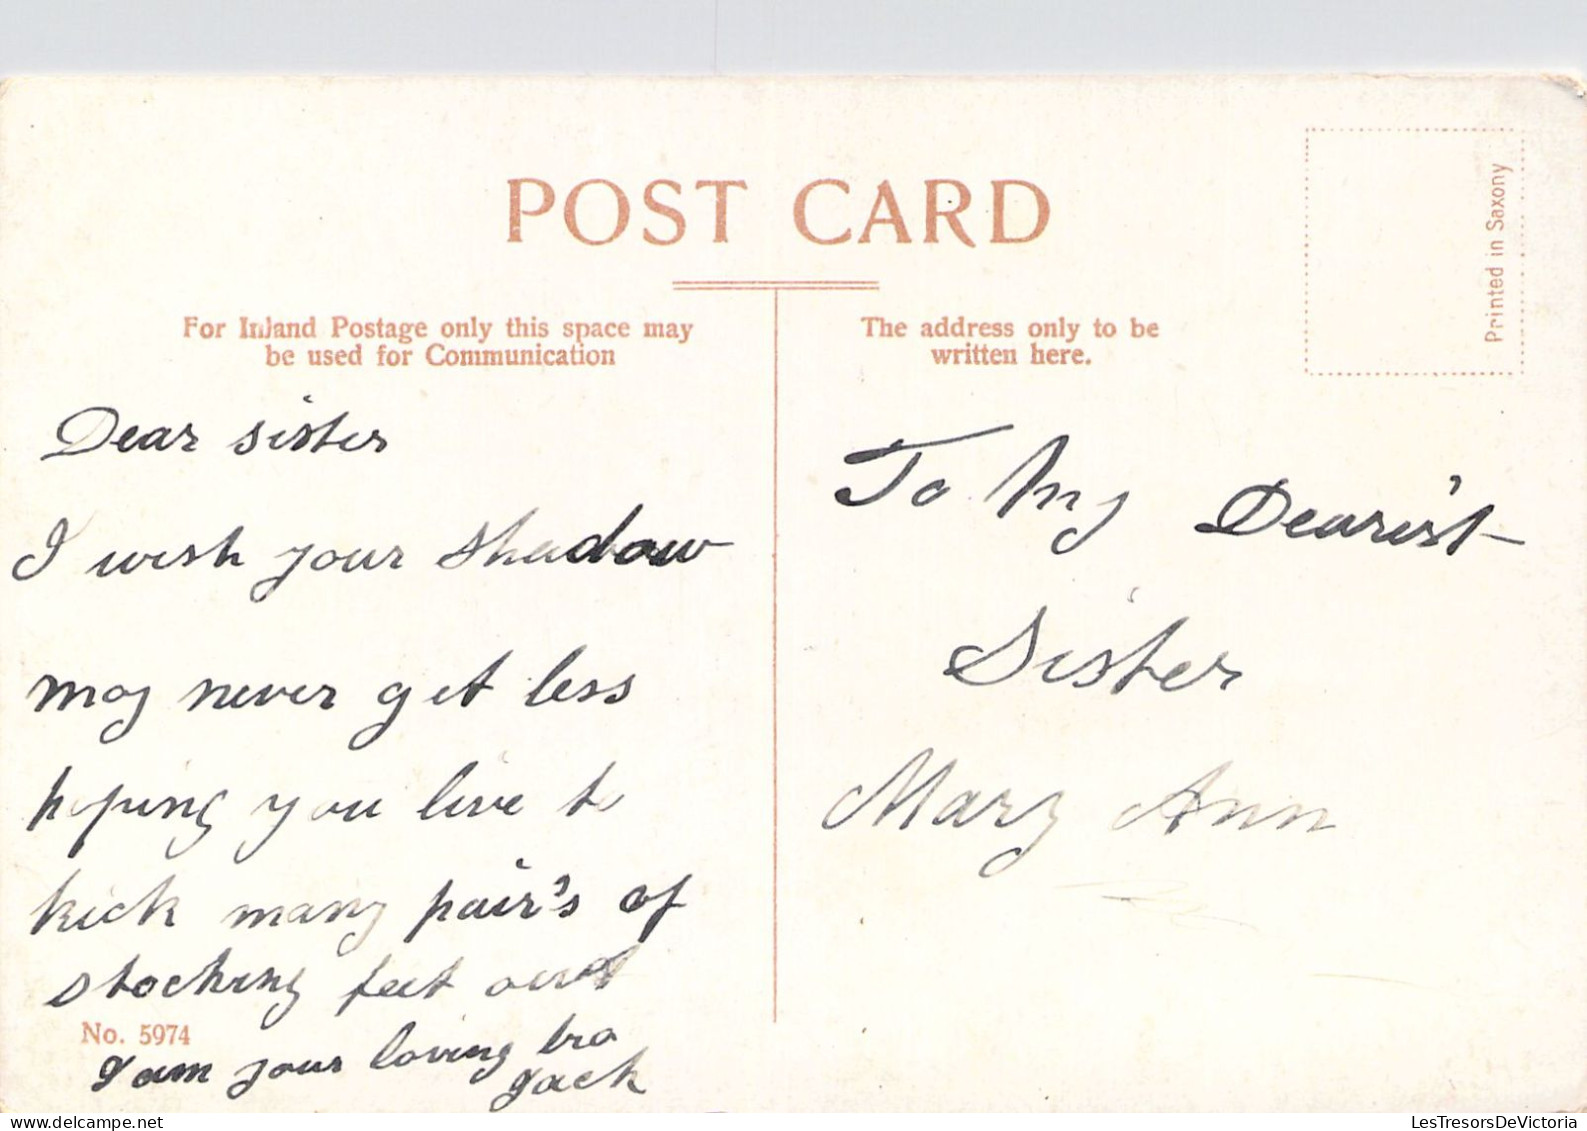 POST CARD
Printed in Saxony
For Inland Postage only this space may
be used for Communication
The address only to be
written here.
Dear sister
I wish your shadow
may never get less
hoping you live to
kick many pair's of
stocking feet out
No. 5974
I am your loving bro
Jack
To My Dearis't
Sister
Mary Ann
LesTresorsDeVictoria